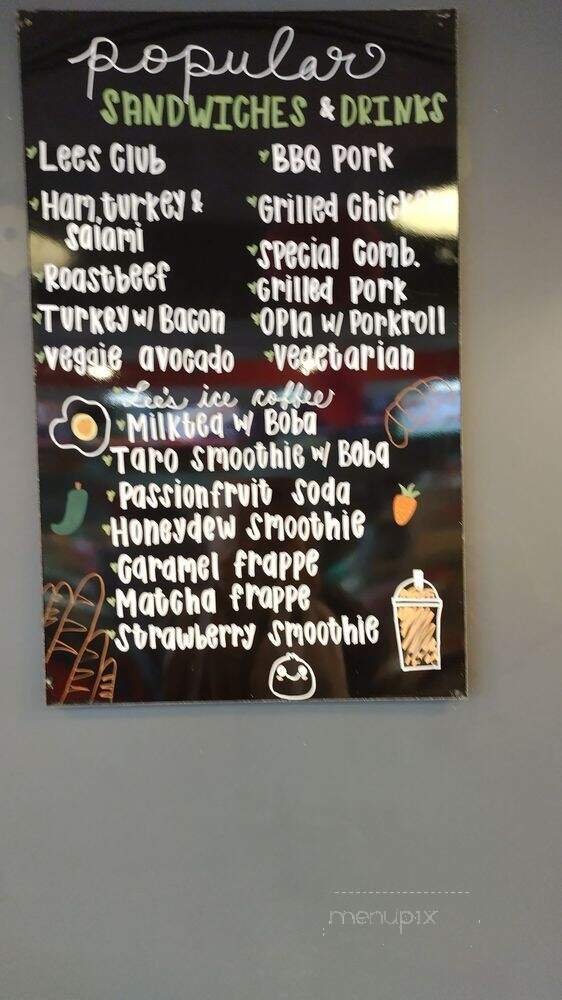 popular
SANDWICHES & DRINKS
Lees Club
Ham, turkey &
salami
Roastbeef
Turkey w/ Bacon
veggie avocado
BBQ Pork
Grilled
Special Comb.
Grilled Pork
OPla w/ Porkroll
vegetarian
Lee's ice coffee
Milktea w/ Boba
Taro smoothie w/ Boba
Passionfruit soda
Honeydew smoothie
Caramel frappe
Matcha frappe
Strawberry smoothie
menupix